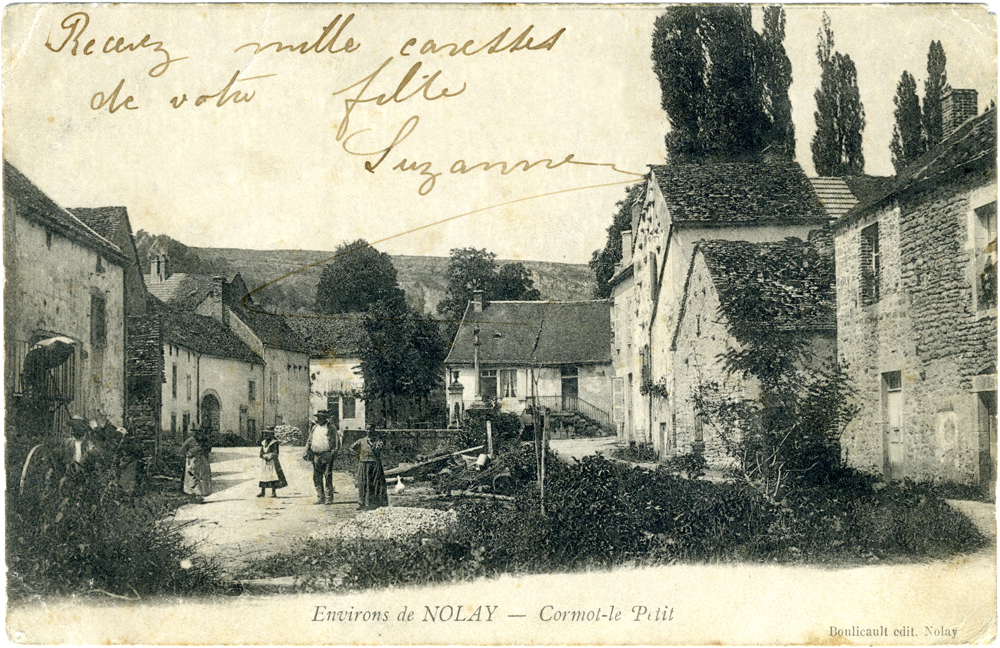 Recevez mille caresses
de votre fille
Suzanne
Environs de NOLAY — Cormot-le Petit
Boulicault edit. Nolay